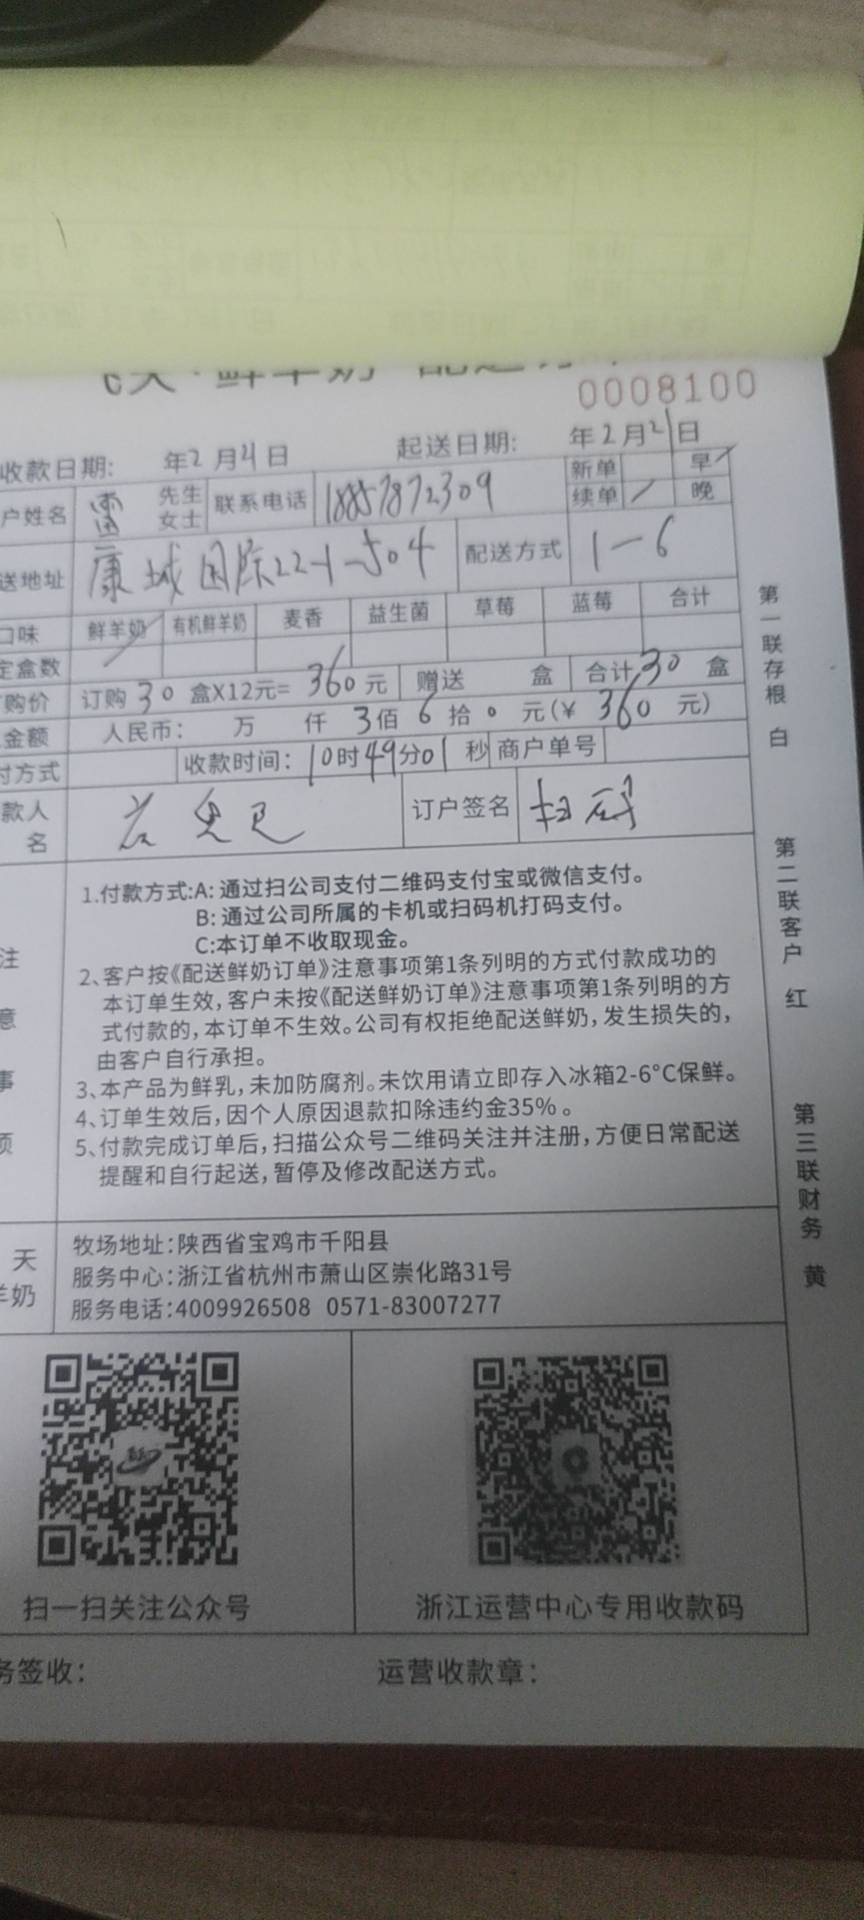 0008100
收款日期: 年2月4日 起送日期: 年2月21日
户姓名 雷 先生 女士 联系电话 18857872309 新单 早 续单 晚
送地址 康城国际22-1-504 配送方式 1-6
口味 鲜羊奶 有机鲜羊奶 麦香 益生菌 草莓 蓝莓 合计
定盒数
购价 订购30盒X12元=360元 赠送 盒 合计30盒
金额 人民币: 万 仟 3佰6拾0元(¥360元)
付方式 收款时间:10时49分01秒 商户单号
款人名 订户签名 扫码
注意事项
1.付款方式:A:通过扫公司支付二维码支付宝或微信支付。
B:通过公司所属的卡机或扫码机打码支付。
C:本订单不收取现金。
2、客户按《配送鲜奶订单》注意事项第1条列明的方式付款成功的
本订单生效,客户未按《配送鲜奶订单》注意事项第1条列明的方
式付款的,本订单不生效。公司有权拒绝配送鲜奶,发生损失的,
由客户自行承担。
3、本产品为鲜乳,未加防腐剂。未饮用请立即存入冰箱2-6°C保鲜。
4、订单生效后,因个人原因退款扣除违约金35%。
5、付款完成订单后,扫描公众号二维码关注并注册,方便日常配送
提醒和自行起送,暂停及修改配送方式。
天
羊奶
牧场地址:陕西省宝鸡市千阳县
服务中心:浙江省杭州市萧山区崇化路31号
服务电话:4009926508 0571-83007277
扫一扫关注公众号 浙江运营中心专用收款码
务签收: 运营收款章:
第一联存根 白
第二联客户 红
第三联财务 黄